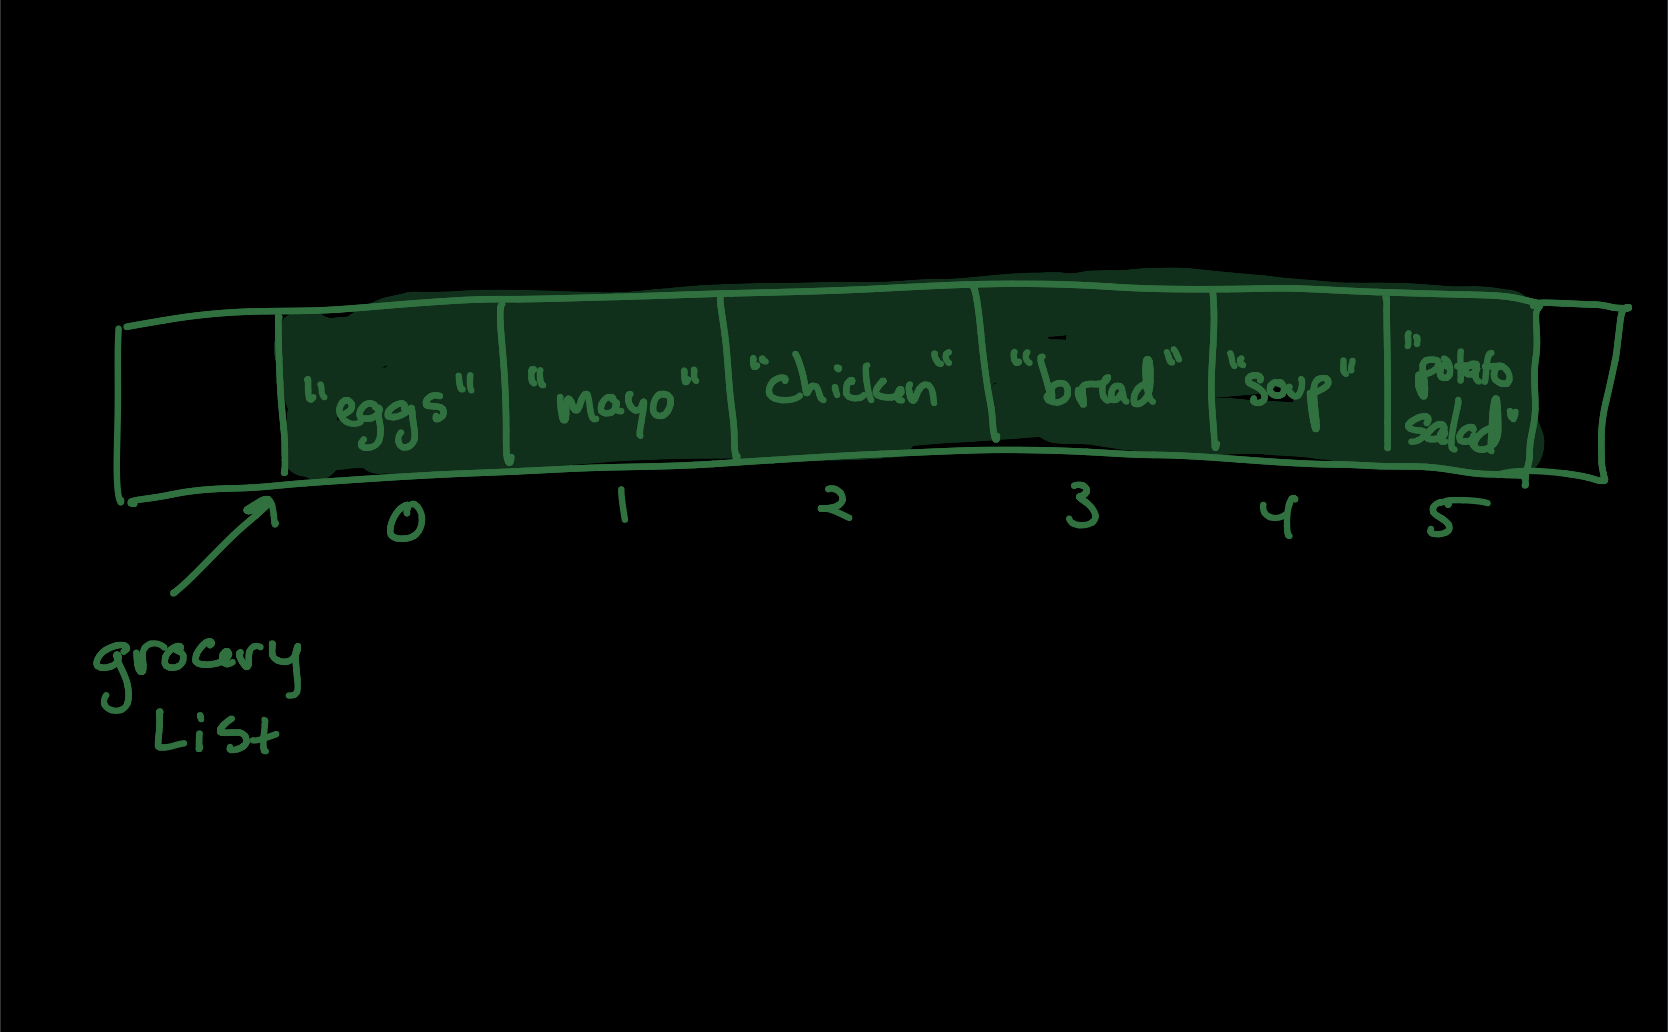 "eggs" "mayo" "chicken" "bread" "soup" "potato
salad"
0 1 2 3 4 5
grocery
List